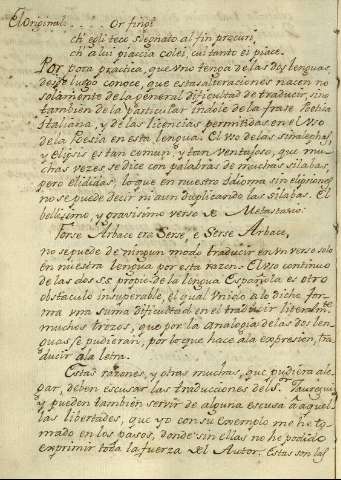 El Original. . . . Or fingi
ch' egli teco sdegnato al fin procuri,
ch' a lui piaccia colei, cui tanto ei piace.
Por poca practica, que uno tenga de las dos lenguas,
desde luego conoce, que estas alteraciones nacen no
solamente de la general dificultad de traducir, sino
tambien de la particular indole de la frase Poetica
Italiana, y de las licencias permitidas en el uso
de la Poesia en esta lengua. El uso de las sinalephas,
y elipsis es tan comun, y tan ventajoso, que mu-
chas vezes se dice con palabras de muchas silabas
pero elididas, lo que en nuestro Idioma sin elisiones
no se puede decir ni aun duplicando las silabas. El
bellisimo, y gravisimo verso de Metastasio:
Forse Arbace era Serse, è Serse Arbace,
no se puede de ningun modo traducir en un verso solo
en nuestra lengua por esta razon. El uso continuo
de las dos SS. propio de la lengua Española es otro
obstaculo insuperable, el qual unido a lo dicho, for-
ma una suma dificultad en el traducir literalmte
muchos trozos, que por la analogia de las dos len-
guas se pudieran, por lo que hace a la expresion, tra-
ducir a la letra.
Estas razones, y otras muchas, que pudiera ale-
gar, deben escusar las traducciones del Sor Jauregui
y pueden tambien servir de alguna escusa à aquel-
las libertades, que yo con su exemplo me he to-
mado en los pasos, donde sin ellas no he podido
exprimir toda la fuerza del Autor. Estas son las